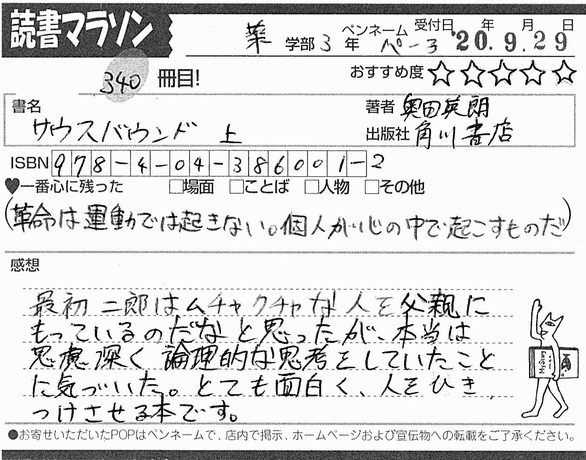 読書マラソン
薬 学部 3 年 ペンネーム ぺーさ 受付日 '20.年 9.月 29日
340 冊目! おすすめ度 ☆☆☆☆☆
書名 サウスバウンド 上
著者 奥田英朗
出版社 角川書店
ISBN 978-4-04-386001-2
♥一番心に残った □場面 □ことば □人物 □その他
(革命は運動では起きない。個人が心の中で起こすものだ)
感想
最初二郎はムチャクチャな人を父親に
もっているのだなと思ったが、本当は
思慮深く論理的な思考をしていたこと
に気づいた。とても面白く、人をひき
つけさせる本です。
●お寄せいただいたPOPはペンネームで、店内で掲示、ホームページおよび宣伝物への転載をご了承ください。